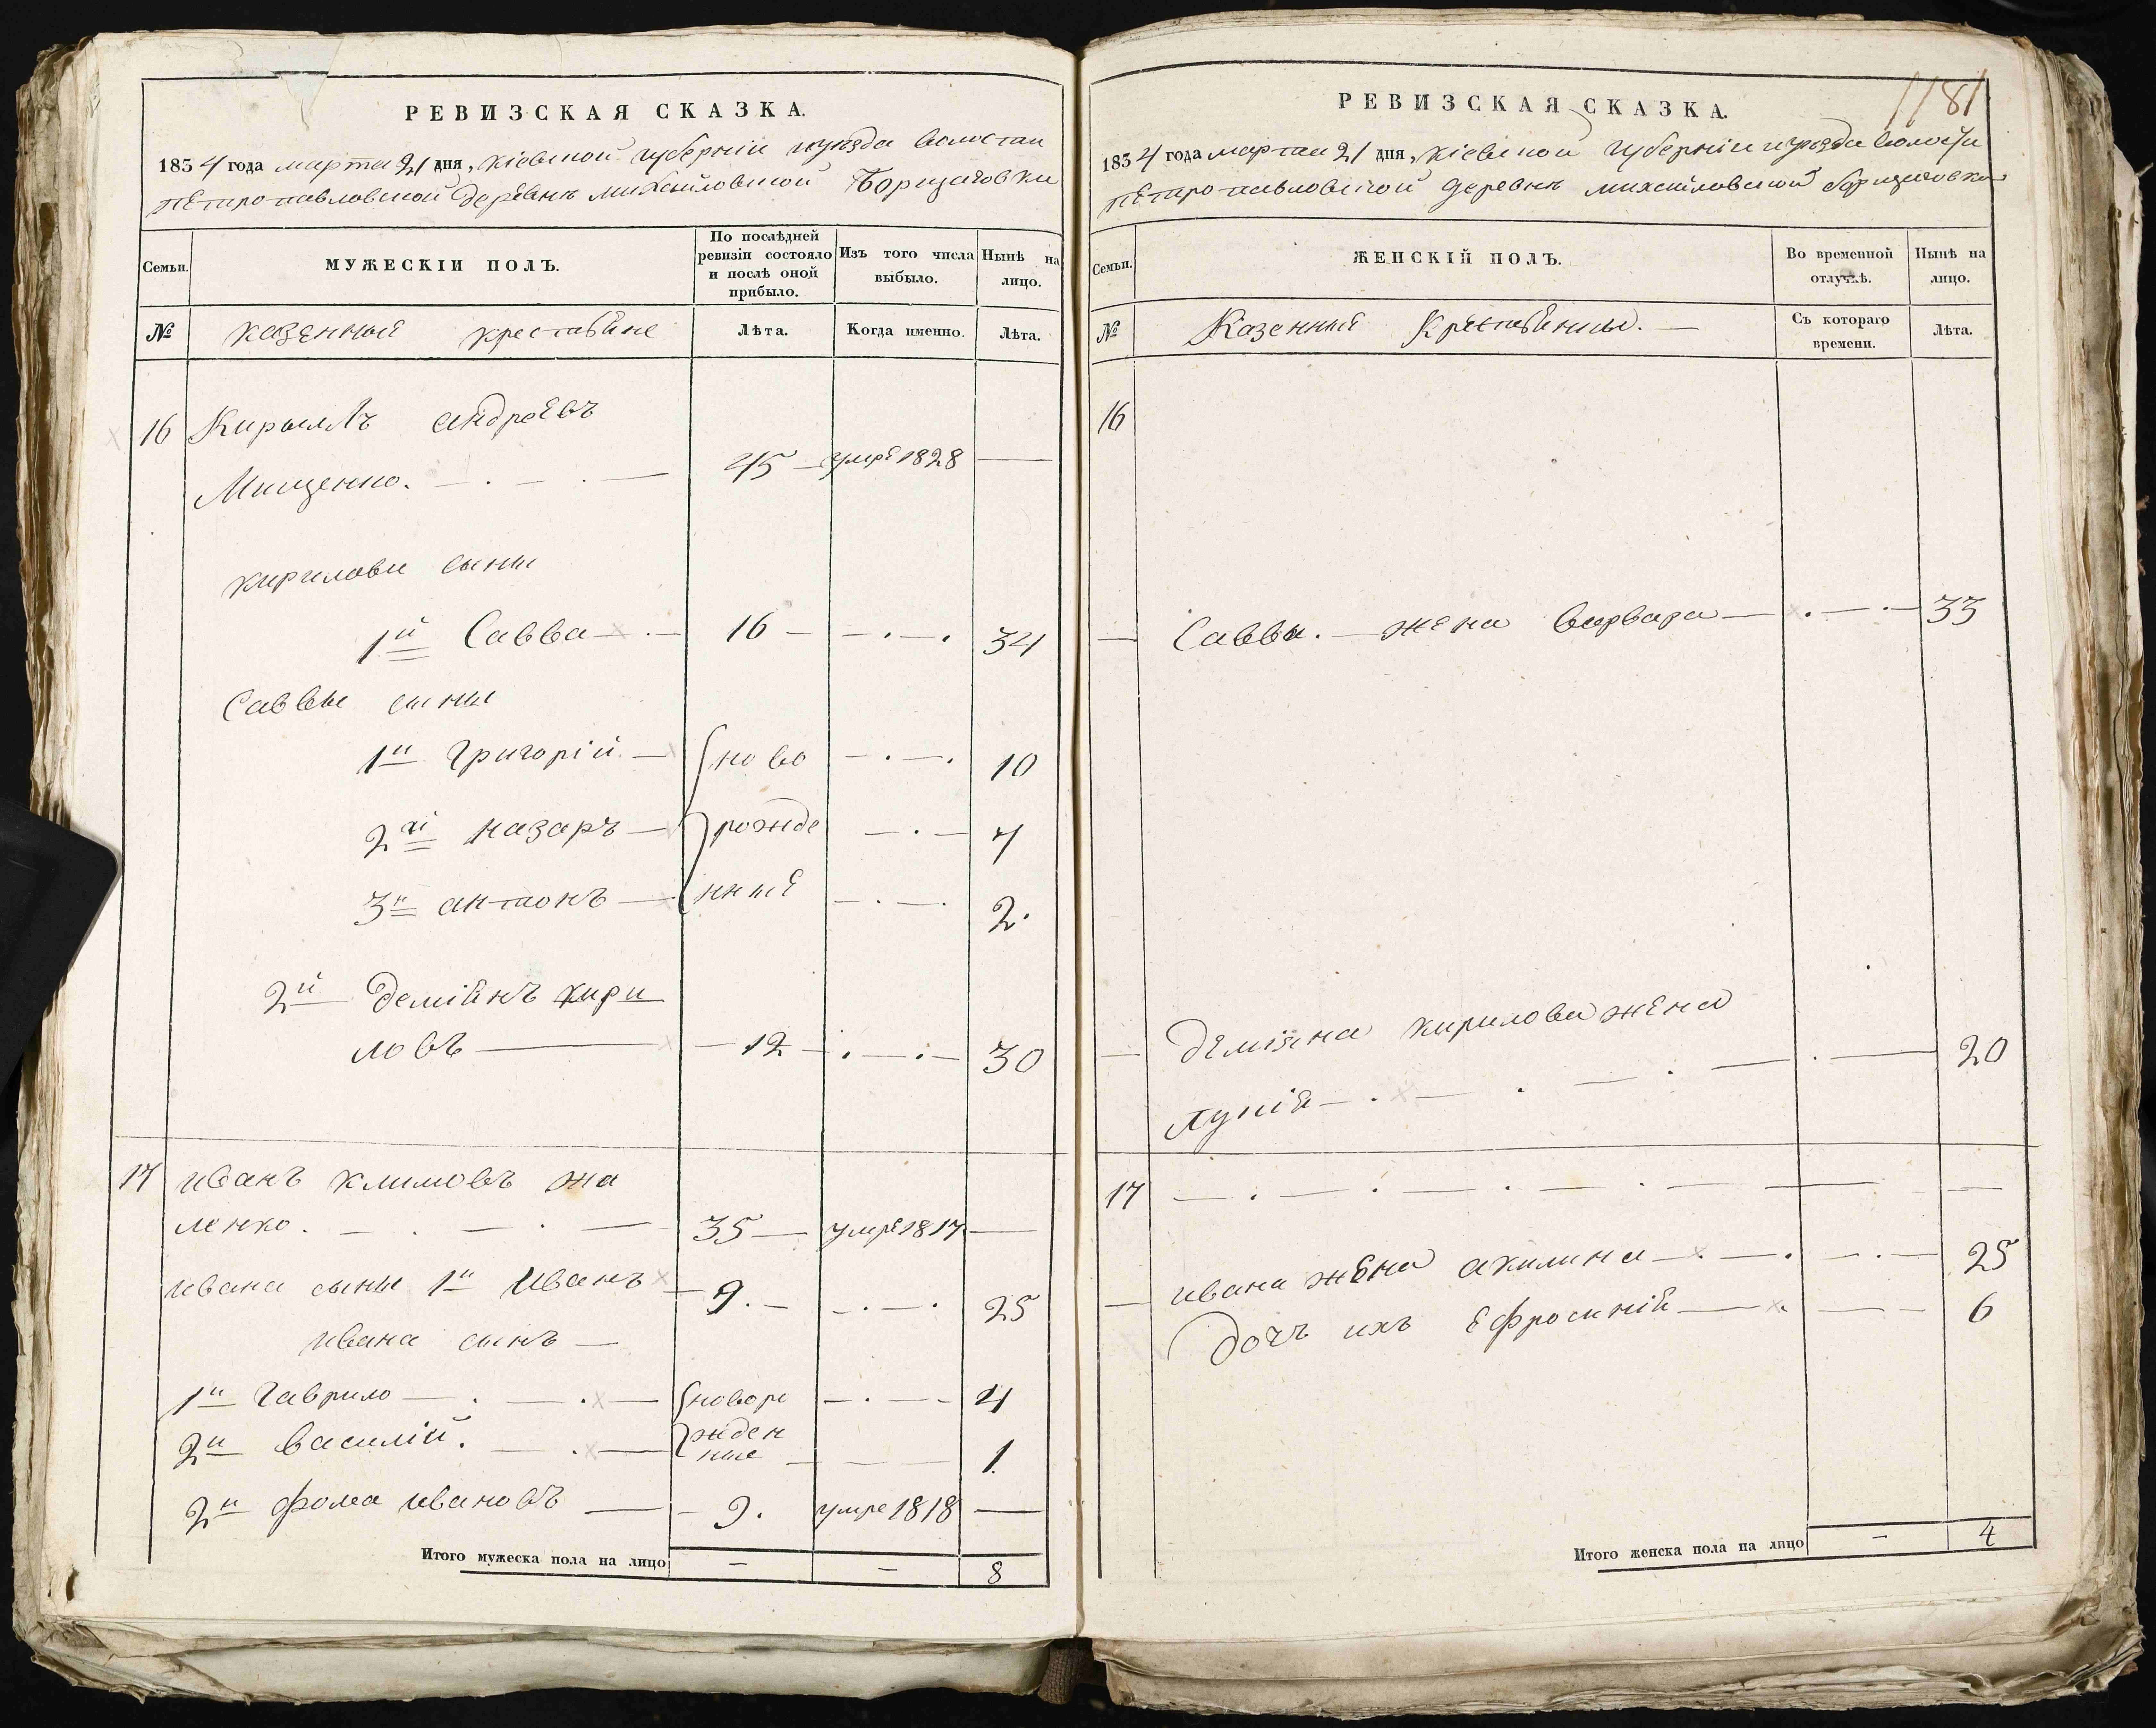 РЕВИЗСКАЯ СКАЗКА.
1834 года марта 21 дня, Кіевской губерніи и уѣзда волости
Петропавловской деревнѣ Михайловской Борщаговки
Семьи.
МУЖЕСКІИ ПОЛЪ.
По послѣдней ревизіи состояло и послѣ оной прибыло.
Изъ того числа выбыло.
Нынѣ на лицо.
№
казенныѣ крестьяне
Лѣта.
Когда именно.
Лѣта.
16 Кирыллъ андреевъ
Мищенко. 45 умре 1828
кирилови сыны
1й Савва 16 34
Саввы сыны
1й Григорій ново 10
2й назаръ рожде 7
3й антонъ нныѣ 2.
2й деміянъ кири
ловъ 12 30
17 иванъ климовъ жа
ленко. 35 умре 1817
ивана сыны 1й иванъ 9. 25
ивана сынъ
1й Гаврило новоро 4
2й василій. жден 1
ные
2й фома ивановъ 9. умре 1818
Итого мужеска пола на лицо 8
РЕВИЗСКАЯ СКАЗКА.
1181
1834 года марта 21 дня, Кіевской губерніи и уѣзда волости
Петропавловской деревнѣ михайловской борщаговки
Семьи.
ЖЕНСКІЙ ПОЛЪ.
Во временной отлучкѣ.
Нынѣ на лицо.
№
Казенныѣ Крестьянки.
Съ котораго времени.
Лѣта.
16
Саввы. жена варвара 33
деміяна кирилова жена
лукія 20
17
ивана жена акилина 25
дочъ ихъ ефросинія 6
Итого женска пола на лицо 4